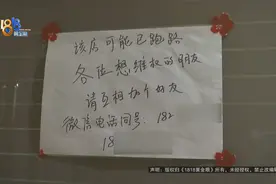 该店可能已跑路
各位想维权的朋友
请互相加个好友
微信电话同号: 182
18
声明:版权归《1818黄金眼》所有,未经授权,禁止改编